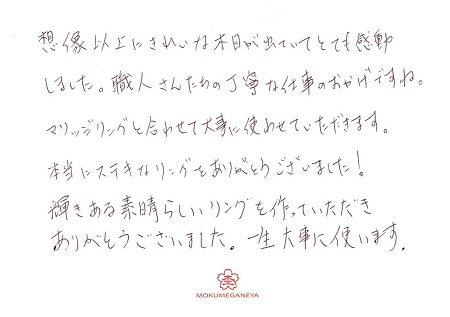 想像以上にきれいな木目が出ていてとても感動
しました。職人さんたちの丁寧な仕事のおかげですね。
マリッジリングと合わせて大事に使わせていただきます。
本当にステキなリングをありがとうございました！
輝きある素晴らしいリングを作っていただき
ありがとうございました。一生大事に使います。
MOKUMEGANEYA